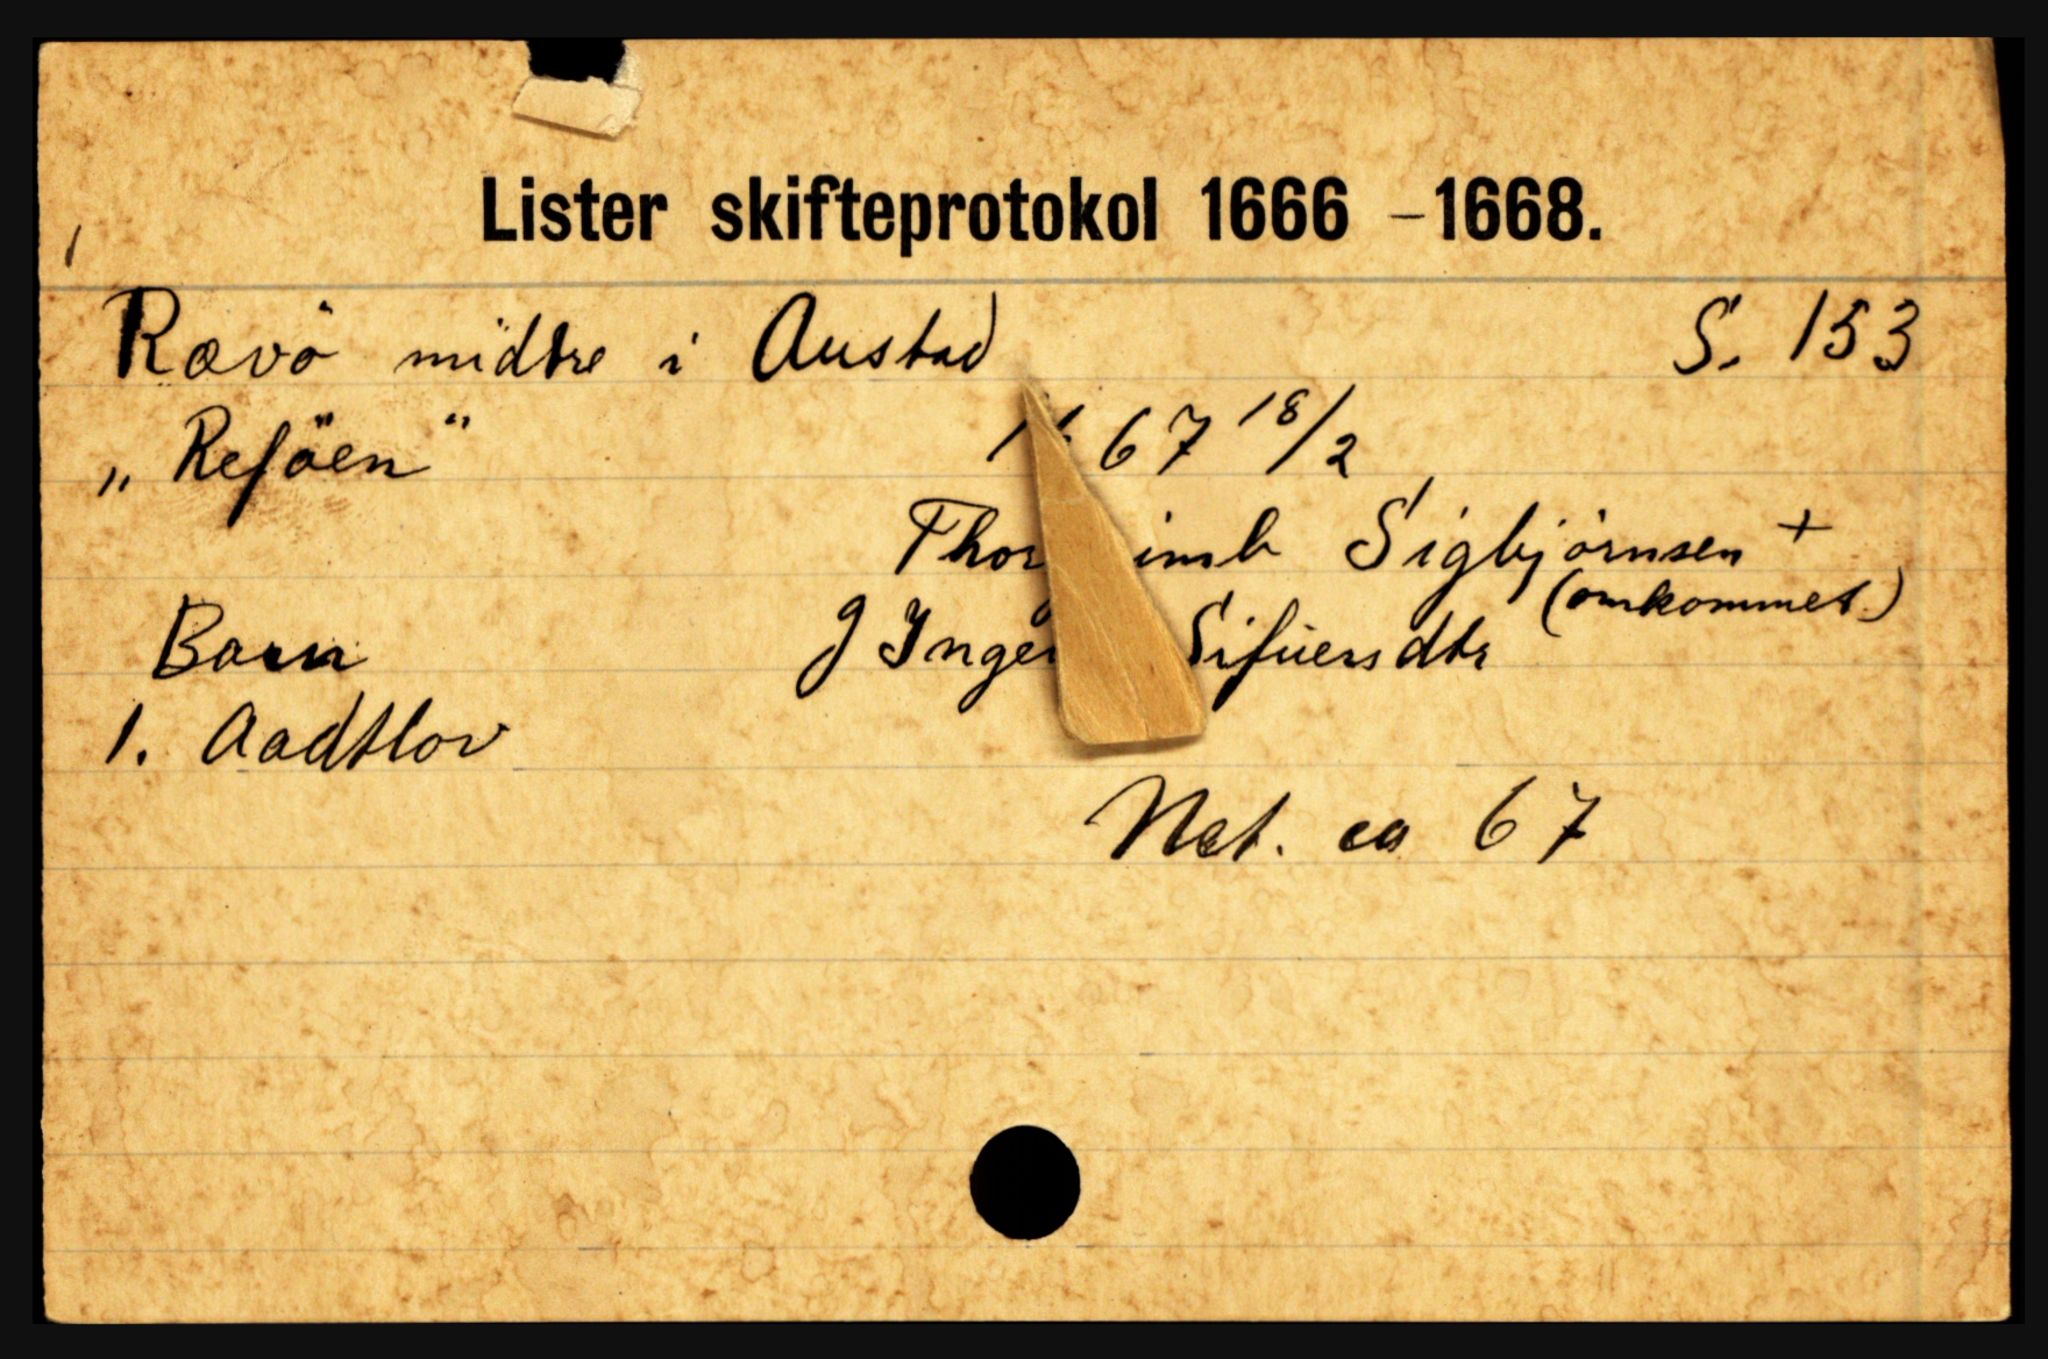 Lister skifteprotokol 1666 – 1668.
Rævö midtre i Austad S. 153
„Reföen" 1667 18/2
Sigbjörnsen +
(omkommet)
Barn J Sifuersdtr
1. Aadtlov
Net. ca 67